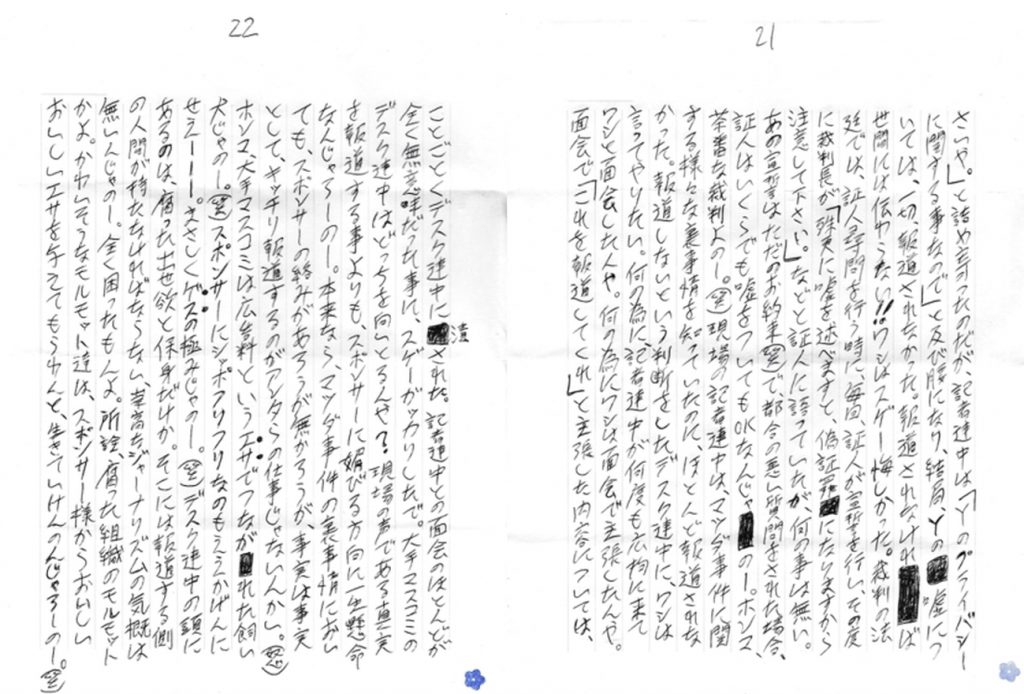 21
さいや。」と詰め寄ったのだが、記者連中は「Yのプライバシー
に関する事なので」と及び腰になり、結局、Yの虚につ
いては、一切、報道されなかった。報道されなければ
世間には伝わらない!!ワシはスゲー悔しかった。裁判の法
廷では、証人尋問を行う時に、毎回、証人が宣誓を行い、その度
に裁判長が「故意に嘘を述べますと、偽証罪になりますから
注意して下さい。」などと証人に語っていたが、何の事は無い。
あの宣誓はただのお約束(笑)で、都合の悪い質問をされた場合、
証人はいくらでも嘘をついてもOKなんじゃのー。ホンマ、
茶番な裁判よのー。(笑)現場の記者連中は、マツダ事件に関
する様々な裏事情を知っていたのに、ほとんど報道されな
かった。報道しないという判断をしたデスク連中に、ワシは
言ってやりたい。何の為に、記者連中が何度も広拘に来て
ワシと面会したんや。何の為にワシは面会で主張したんや。
面会で「これを報道してくれ」と主張した内容については、
22
ことごとくデスク連中に潰された。記者連中との面会のほとんどが
全く無意味だった事に、スゲーガッカリしたで。大手マスコミの
デスク連中はどっちを向いとるんや?現場の声である真実
を報道する事よりも、スポンサーに媚びる方向に一生懸命
なんじゃろーのー。本来なら、マツダ事件の裏事情におい
ても、スポンサーの絡みがあろうが無かろうが、事実は事実
として、キッチリ報道するのがアンタらの仕事じゃないんかい。(怒)
ホンマ、大手マスコミは広告料というエサでつながれた飼い
犬じゃのー。(笑)スポンサーにシッポフリフリなのもええかげんに
せえーーー。まさしくゲスの極みじゃのー。(笑)デスク連中の頭に
あるのは、腐った出世欲と保身だけか。そこには報道する側
の人間が持たなければならない、崇高なジャーナリズムの気概は
無いんじゃのー。全く困ったもんよ。所詮、腐った組織のモルモット
かよ。かわいそうなモルモット達は、スポンサー様からおいしい
おいしいエサを与えてもらわんと、生きていけんのんじゃろーのー。(笑)